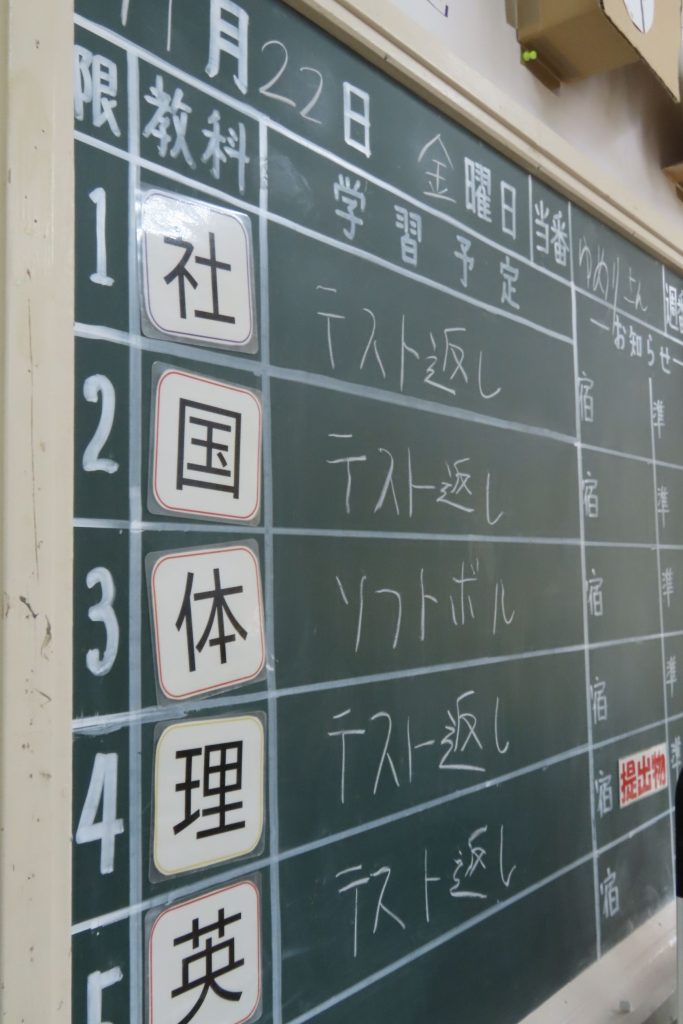 11月22日 金曜日 当番 ゆめり
限 教科 学習予定 お知らせ
1 社 テスト返し 宿 準
2 国 テスト返し 宿 準
3 体 ソフトボル 宿 準
4 理 テスト返し 宿 準
5 英 テスト返し 宿 提出物 準
宿